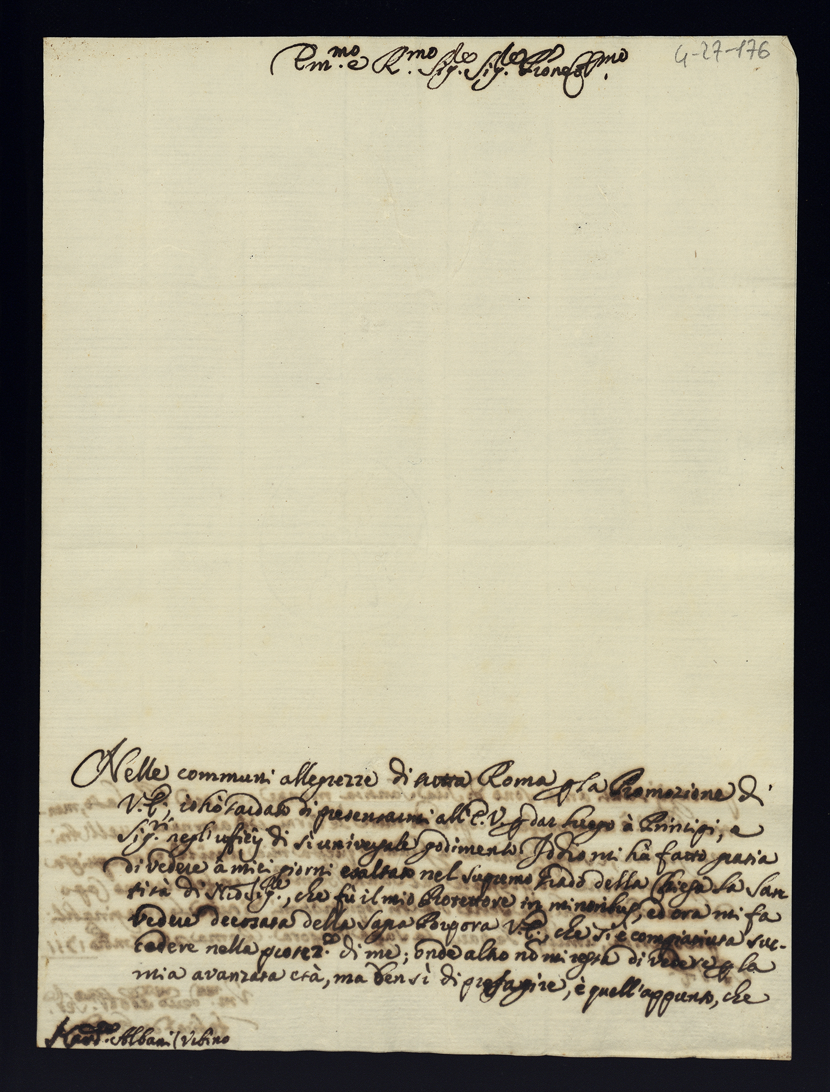 Em.mo e R.mo Sig.re Sig.re P'rone Col.mo
4-27-176
Nelle communi allegrezze di tutta Roma p la Promozione di
V.E., io hò tardato di presentarmi all'E.V. p dar luogo à Principi, e
Sig.ri negli uffizij di sì universale godimento. Iddio mi hà fatto grazia
di vedere à miei giorni esaltato nel supremo grado della Chiesa la San-
tità di N'ro Sig.re, che fù il mio Protettore in minoribus, ed ora mi fa
vedere decorata della Sagra Porpora V.E., che si è compiaciuta suc-
cedere nella protez.ne di me; onde altro nõ mi resta di vedere p la
mia avanzata età, ma bensì di presagire, è quell'appunto, che
Card.le Albani (Urbino